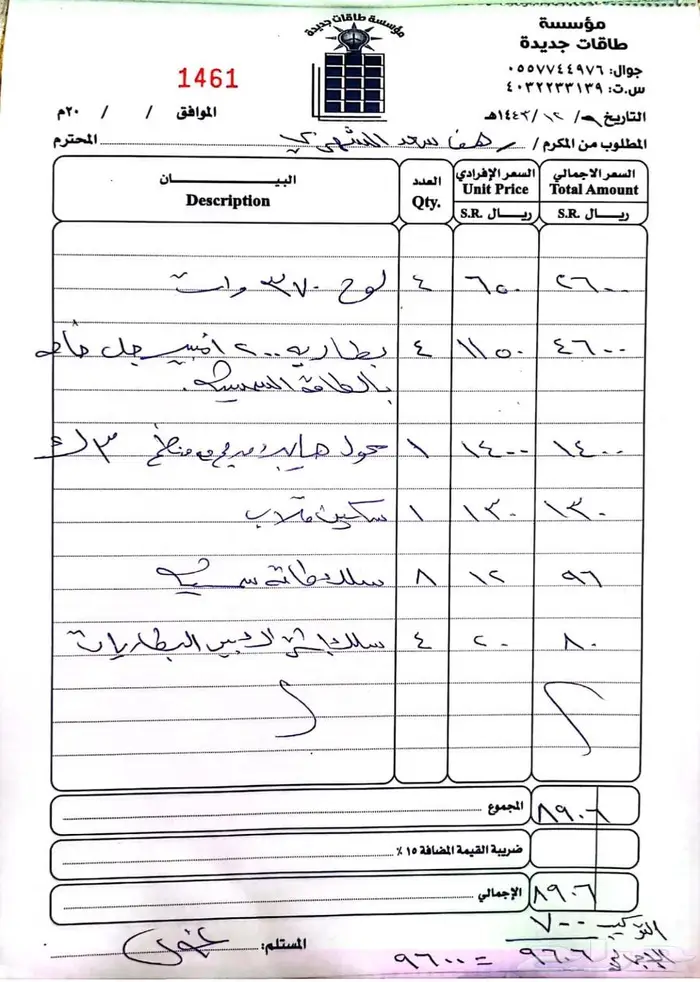 مؤسسة طاقات جديدة
مؤسسة
طاقات جديدة
جوال: ٠٥٥٧٧٤٤٩٧٦
س.ت: ٤٠٣٢٢٣٣١٣٩
1461
التاريخ ٩/١٢/١٤٤٣هـ
الموافق / / ٢٠م
المطلوب من المكرم / رهف سعد الشهري المحترم
البيـــــان العدد السعر الإفرادي السعر الاجمالي
Description Qty. Unit Price Total Amount
ريـال S.R. ريـال S.R.
لوح ٣٧٠ وات ٤ ٦٥٠ ٢٦٠٠
بطاريه ٢٠٠ امبير جل خاصه ٤ ١١٥٠ ٤٦٠٠
بالطاقة الشمسيه.
محول هايبرد مدمج مع منظم ٣ ك ١ ١٤٠٠ ١٤٠٠
سكين قلاب ١ ١٣٠ ١٣٠
سلك طاقة شمسيه ٨ ١٢ ٩٦
سلك البطاريات ٤ ٢٠ ٨٠
المجموع ٨٩٠٦
ضريبة القيمة المضافة ١٥ ٪
الإجمالي ٨٩٠٦
التركيب ٧٠٠
الإجمالي ٩٦٠٦ = ٩٦٠٠
المستلم: